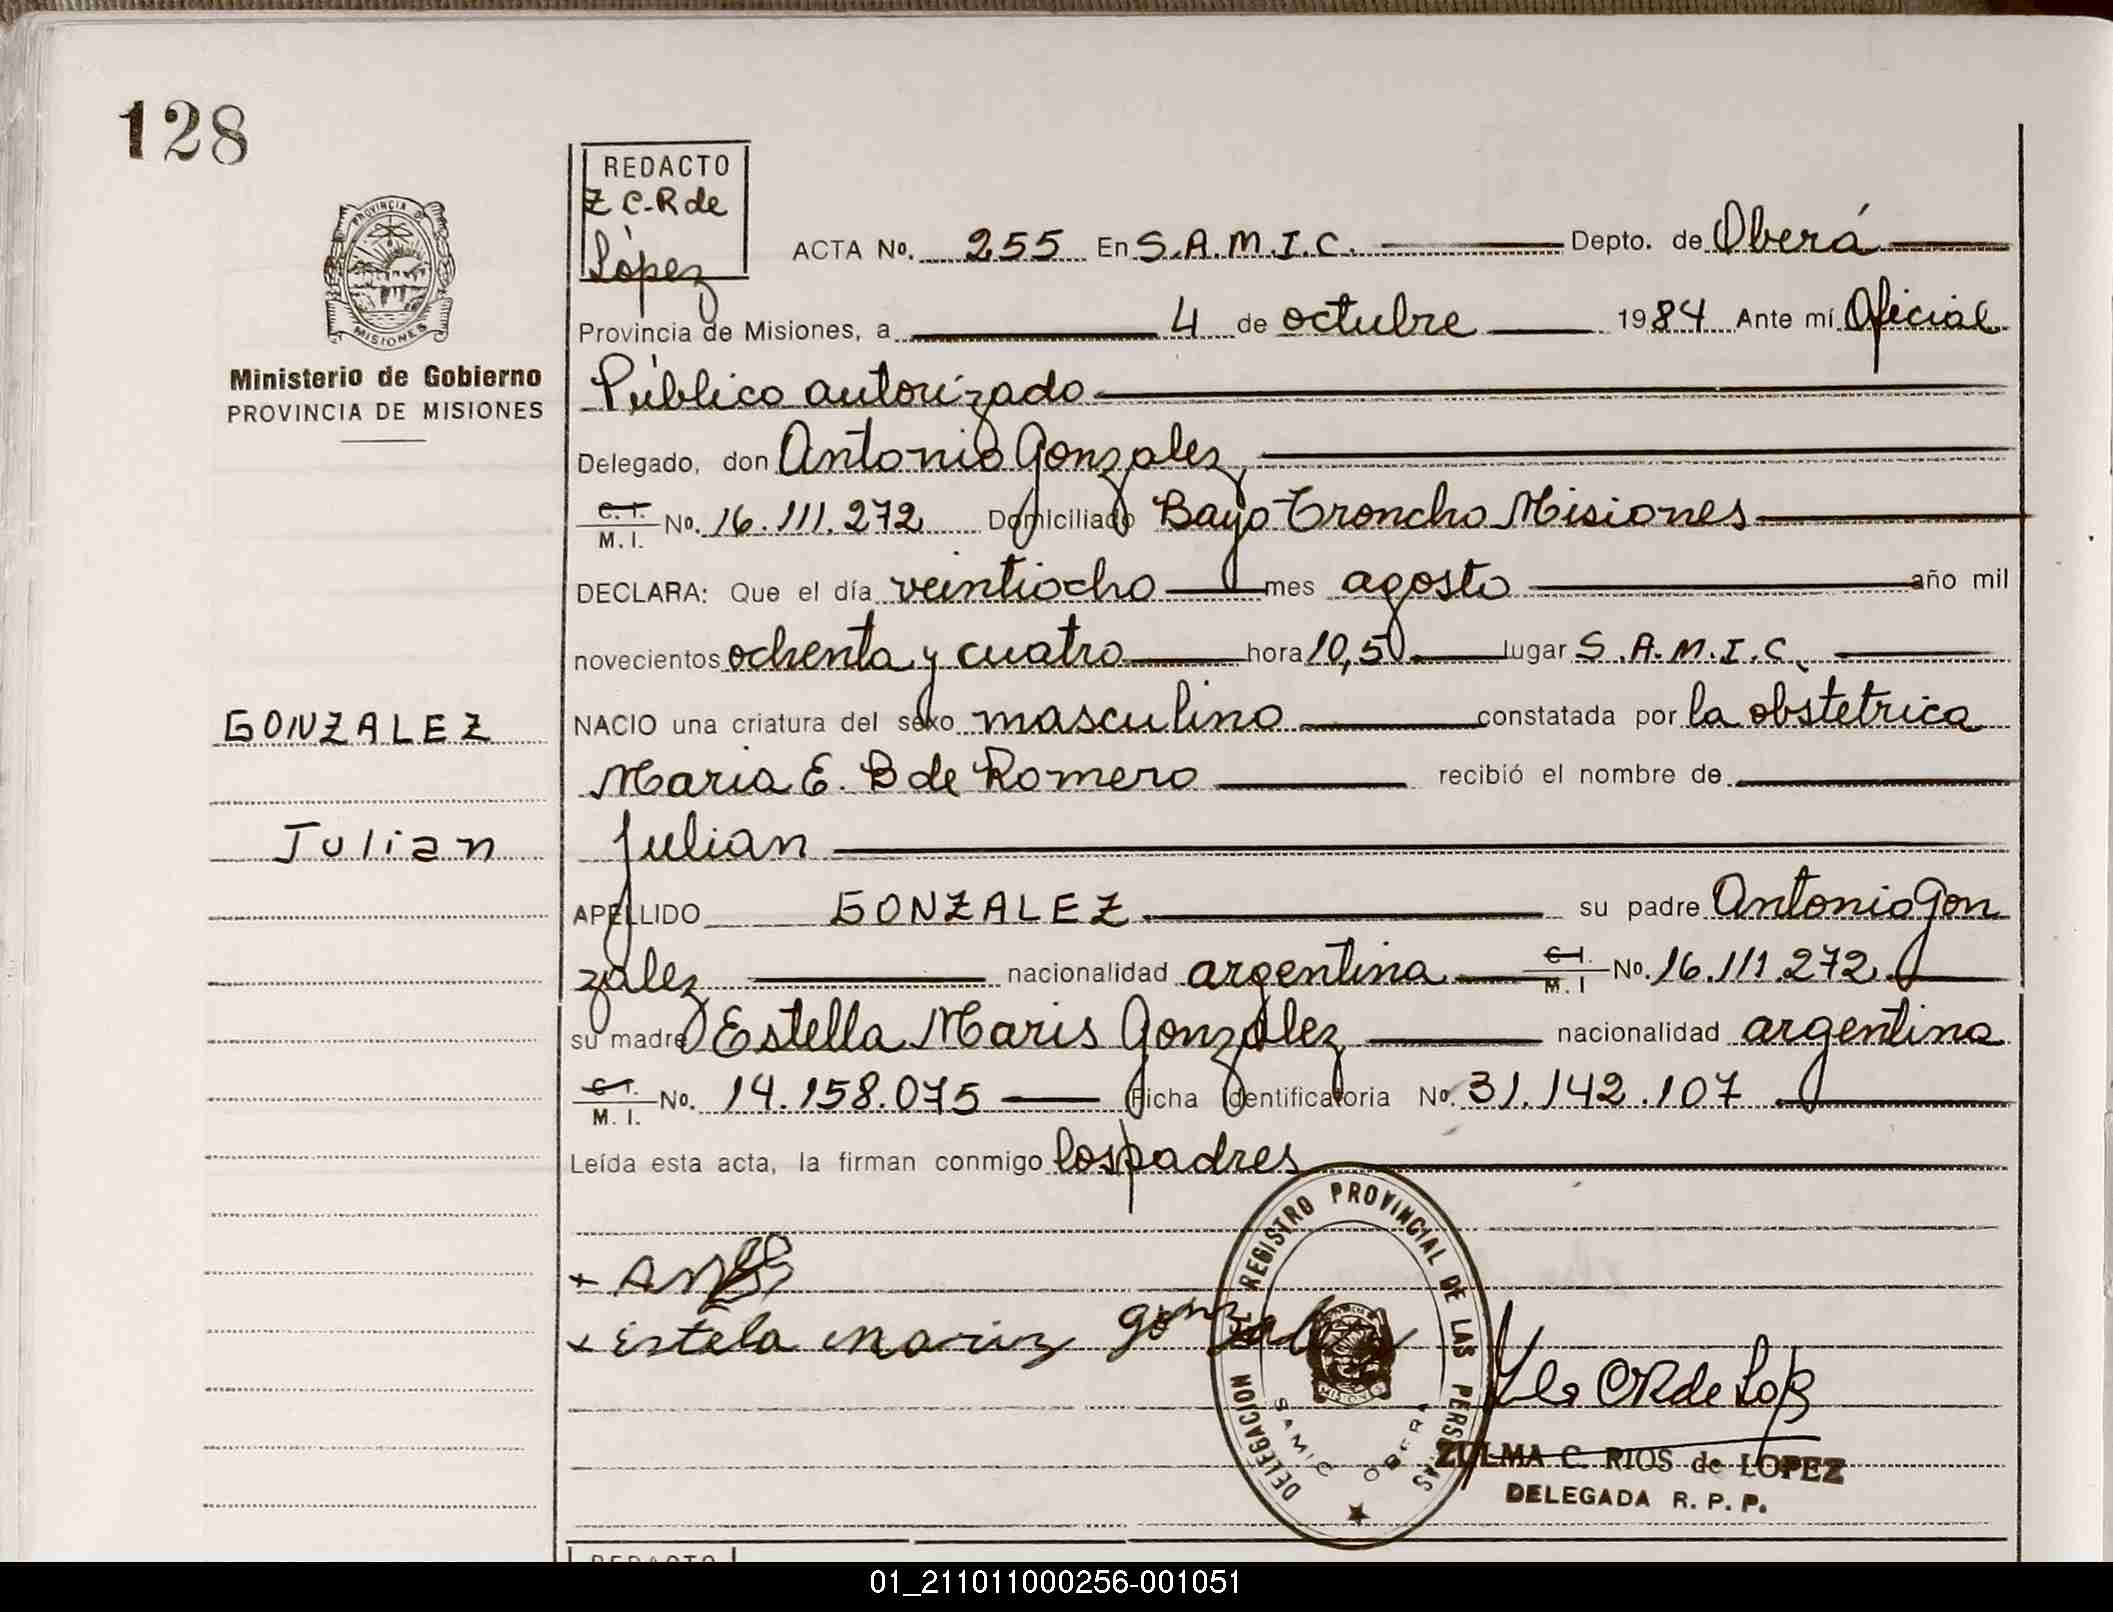 128
REDACTO
Z C-R de
López
PROVINCIA DE
MISIONES
Ministerio de Gobierno
PROVINCIA DE MISIONES
ACTA No. 255 En S.A.M.I.C. Depto. de Oberá
Provincia de Misiones, a 4 de octubre 1984 Ante mí Oficial
Público autorizado
Delegado, don Antonio Gonzalez,
C. I. M. I. No. 16.111.272 Domiciliado Bayo Troncho Misiones
DECLARA: Que el día veintiocho mes agosto año mil
novecientos ochenta y cuatro hora 10,50 lugar S.A.M.I.C.
GONZALEZ
NACIO una criatura del sexo masculino constatada por la obstetrica
Maria E. B de Romero recibió el nombre de
Julian
Julian
APELLIDO GONZALEZ su padre Antonio Gon
zalez nacionalidad argentina C.I. M.I No. 16.111.272
su madre Estella Maris González nacionalidad argentina
C.I. M. I. No. 14.158.075 Ficha Identificatoria No. 31.142.107
Leída esta acta, la firman conmigo los padres
Estela mariz gonzalez
DELEGACION DE REGISTRO PROVINCIAL DE LAS PERSONAS
SAMIC OBERA
ZULMA C. RIOS de LOPEZ
DELEGADA R. P. P.
REDACTO
01_211011000256-001051